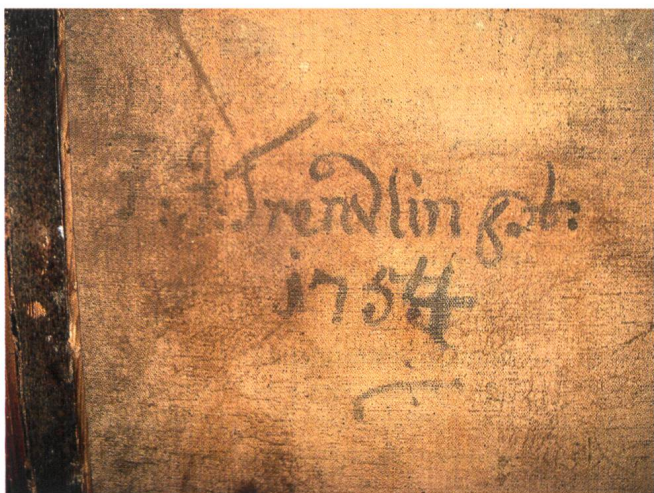 J. A. Trendlin g.b:
1754